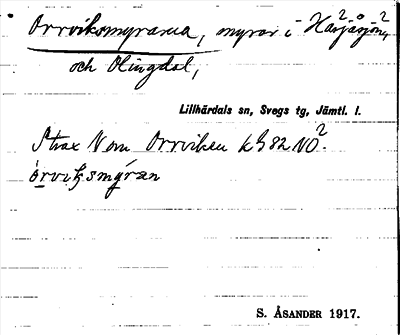 Orrvikomyrarna, myrar i Härjåsjön²
och Olingdal,
Lillhärdals sn, Svegs tg, Jämtl. l.
Strax N om Orrviken k G 82 NO².
S. ÅSANDER 1917.